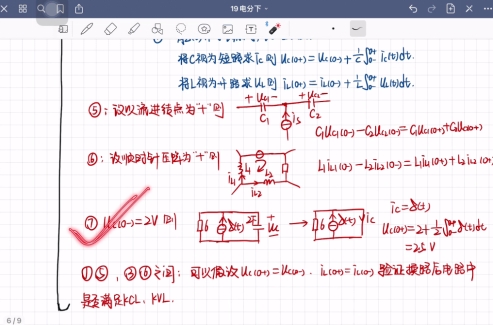 19电分下
将C视为短路求ic 则 Uc(0+)=Uc(0-)+1/C∫0-0+ ic(t)dt.
将L视为开路求UL 则 iL(0+)=iL(0-)+1/L∫0-0+ UL(t)dt.
⑤:设以流进结点为"+"则
+Uc1- +Uc2-
C1 C2
is
C1Uc1(0-)-C2Uc2(0-)=C1Uc1(0+)+C2Uc2(0+)
⑥:设顺时针压降为"+"则
L1 L2
iL1 iL2
L1iL1(0-)-L2iL2(0-)=L1iL1(0+)+L2iL2(0+)
⑦ Uc(0-)=2V 则
6 δ(t) 2F + Uc -
→ 6 δ(t) ic
ic=δ(t)
Uc(0+)=2+1/2∫0-0+ δ(t)dt
=2.5V
①⑤,③⑥之间:可以假设Uc(0+)=Uc(0-).iL(0+)=iL(0-) 验证换路后电路中
是否满足KCL,KVL.
6/9